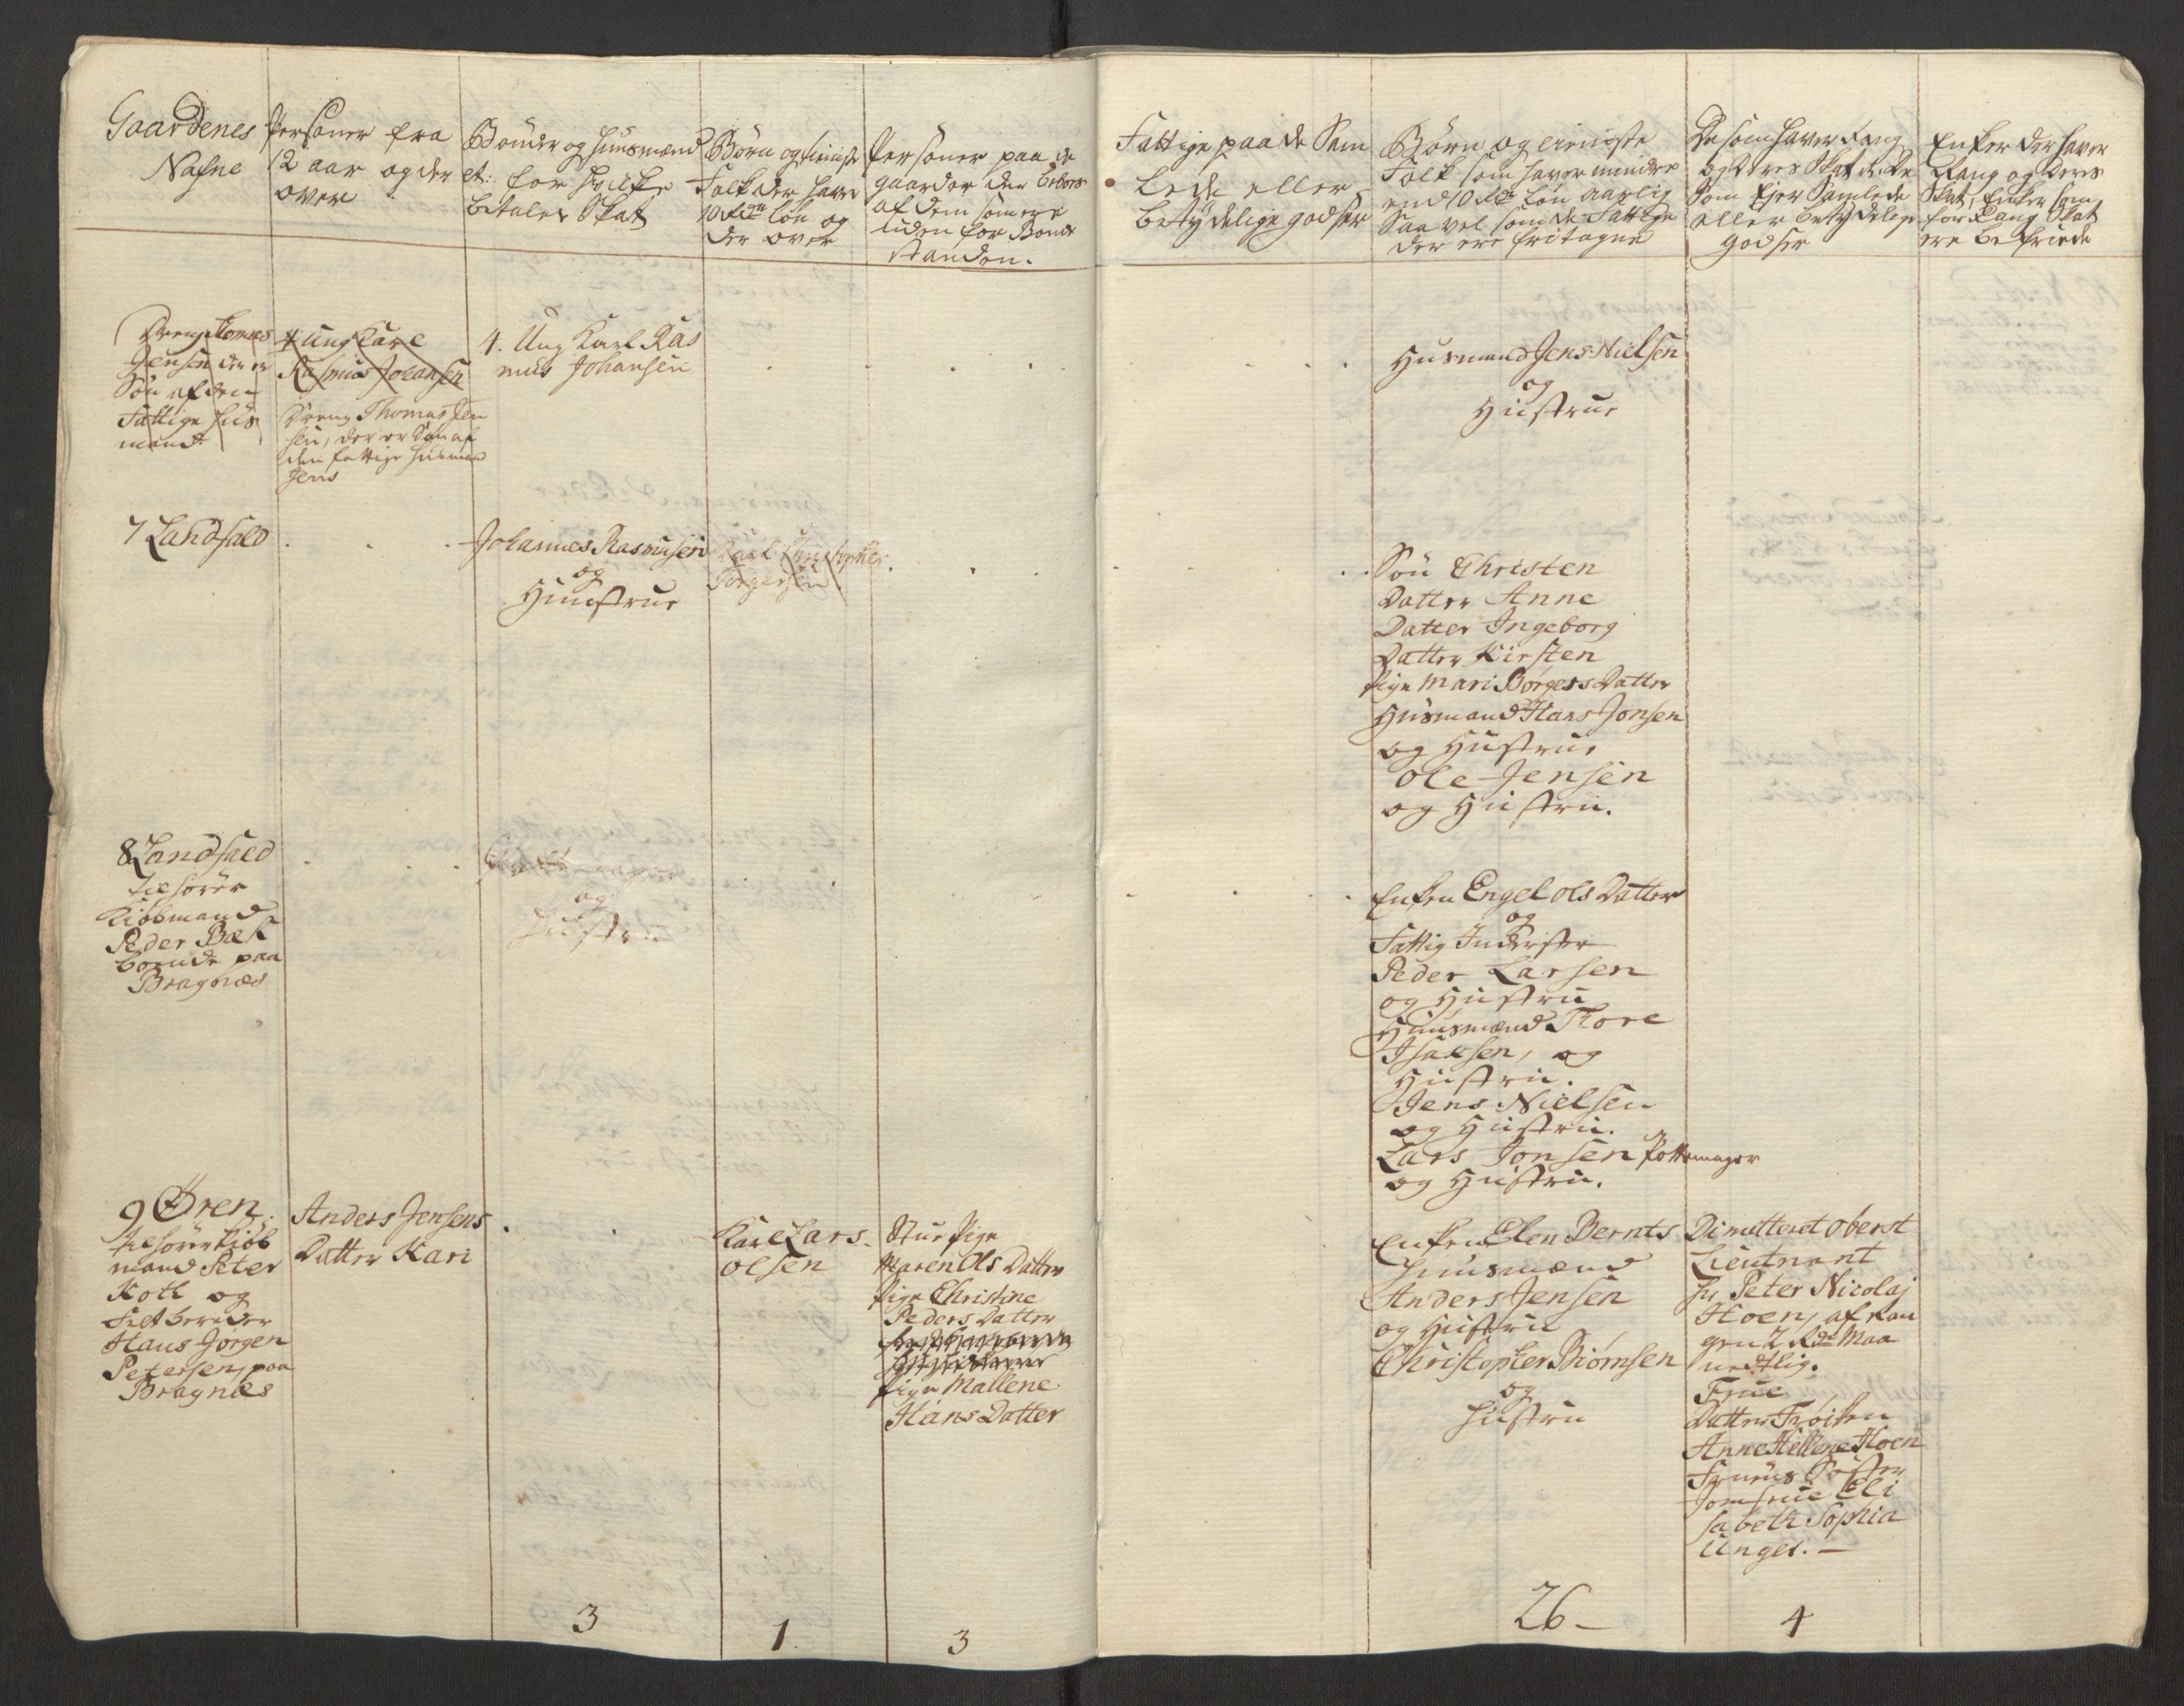 Gaardenes
Nafne
Personer fra
12 aar og der
over
Bønder og Huusmænd
etc: for hvilke
betales Skat
Børn og tieniste
Folk der haver
10 Rdlr løn og
der over
Personer paa de
gaarder der beboes
af dem som ere
uden for Bonde
standen.
Fattige paa de Sam
lede eller
betydelige godser
Børn og tieniste
Folk som haver mindre
end 10 Rdlr løn aarlig
saa vel som de Fattige
der ere fritagne
De som haver Rang
og deres Skat ibd. De
som Ejer Samlede
eller betydelige
godser
Enker der haver
Rang og deres
Skat, Enker som
for Rang Skat
ere befriede
Dreng Thomas
Jensen der er
Søn af den
Fattige Huus
mand
4 Ung Karl
Rasmus Johansen
Dreng Thomas Jen
sen, der er Søn af
den fattige Husmand
Jens
4. Ung Karl Ras
mus Johansen
Husmand Jens Nielsen
og
Hustrue
7 Landfald
Johannes Rasmusen
og
Huustrue
Karl Christopher
Torgersen
Søn Christen
Datter Anne
Datter Ingeborg
Datter Kirsten
Pige Mari Børgers Datter
Husmand Hans Jonsen
og Hustrue
Ole Jensen
og Hustru.
8 Landfald
tilhører
Kiøbmand
Peder Bæk
boende paa
Bragnæs
og
Hustrue
Enken Engel Ols Datter
og
Fattig Inderster
Peder Larsen
og Hustru
Huusmænd Thore
Isaksen, og
Hustru.
Jens Nielsen
og Hustru.
Lars Jonsen Pottemager
og Hustru.
9 Øren.
tilhører Kiøb
mand Peter
Koth og
Feltbereder
Hans Jørgen
Petersen, paa
Bragnæs
Anders Jensens
Datter Kari
Karl Lars
Olsen
Stue Pige
Maren Ols Datter
Pige Christine
Peders Datter
Pige Mallene
Hans Datter
Enken Elen Bernts
Huusmænd
Anders Jensen
og Hustru
Christopher Biørnsen
og
Hustru
Dimitteret Oberst
Lieutnant
Hr Peter Nicolaj
Hoen, af Ran
gen 2 Rdr Maa
nedtlig.
Frue
Datter Frøiken
Anne Hellene Hoen
Fruens Søster
Jomfrue Eli
sabeth Sophia
Unger. —
3
1
3
26 —
4